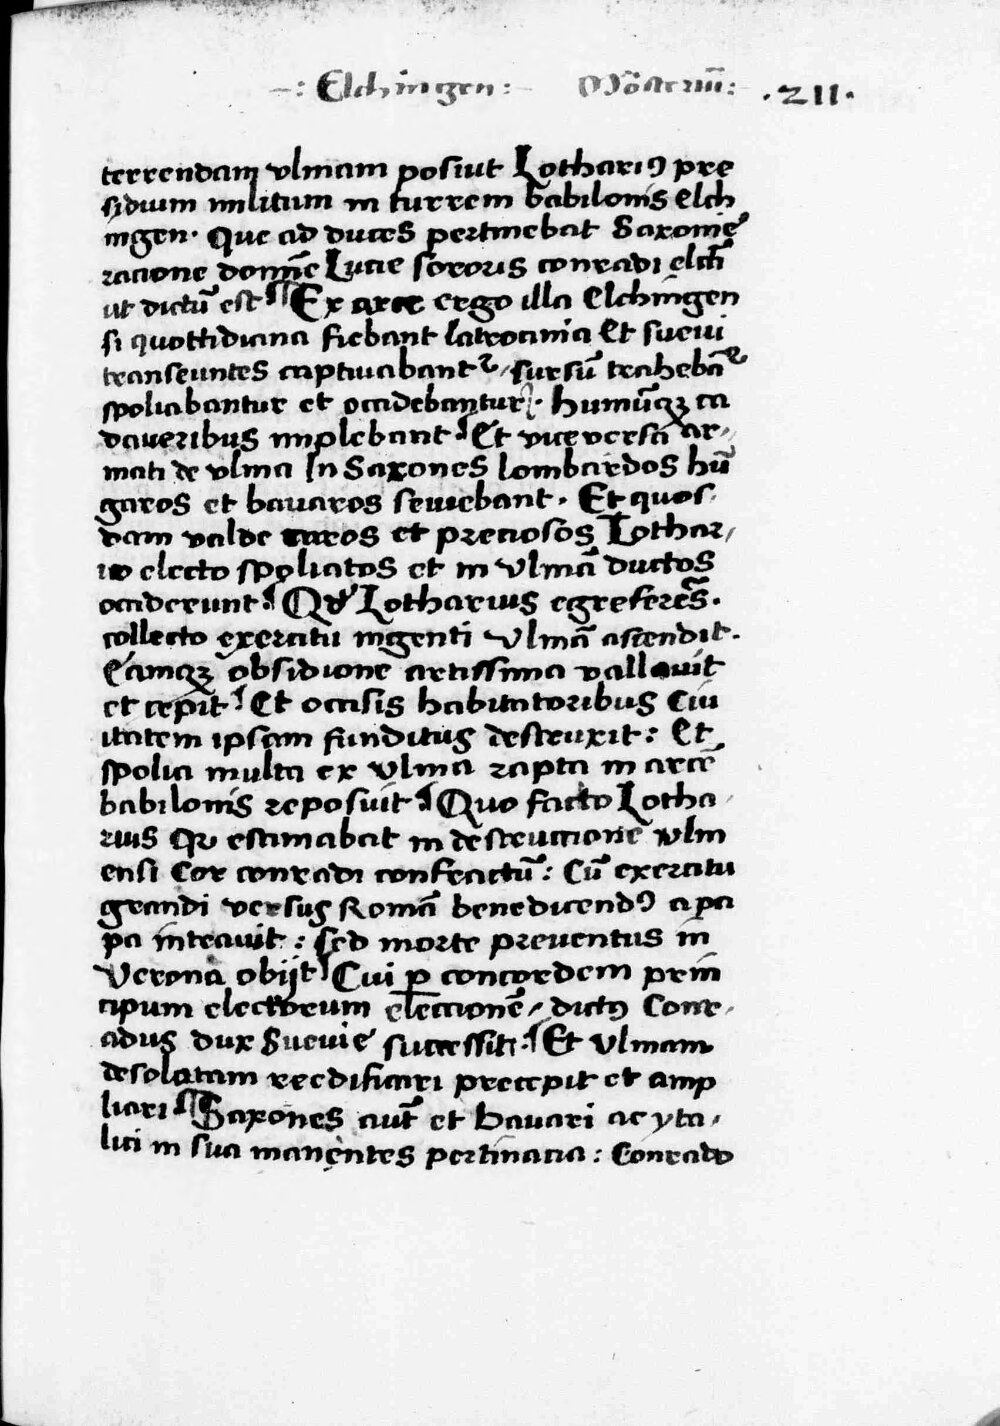 -: Elchingen :- Mōsteriū: .211.
terrendam vlmam posiuit Lothariꝰ pre
sidium militum in turrem babilonis Elch
ingen. Que ad duces pertinebat Saxonie
racione domīe Lucie sororis conradi elcħ
ut dictū est ¶ Ex arce ergo illa Elchingen
si quottidiana fiebant latrocinia Et sueui
transeuntes captiuabant᷑ / sursū trahebāt᷑
spoliabantur et occidebantur. humūqꝫ ca
daueribus implebant Et viceversa ar„
mati de vlma In Saxones lombardos hū
garos et bavaros seuiebant. Et quos„
dam valde caros et preciosos Lothar„
io electo spoliatos et in Vlmā ductos
occiderunt. Qd̛ Lotharius egre ferēs.
collecto exercitu ingenti Vlmā ascendit.
Eamqꝫ obsidione artissima vallauit
et cepit Et occisis habitatoribus Ciu
itatem ipsam funditus destruxit: Et
spolia multa ex Vlma rapta in arcē
babilonis reposuit ¶ Quo facto Lotha„
rius Qꝛ estimabat in destructione vlm
ensi Cor conradi confractū: Cū exercitu
grandi versus Romā benedicendꝰ a pa
pa intrauit: sed morte preuentus in
Verona obijt Cui ꝑ concordem prin
cipum electorum elecctionē / dictꝰ Conr„
adus dux Sueuie successit. Et Vlmam
desolatam reedificari precepit et amp
liari ¶ Saxones aut̄ et bauari ac yta„
lici in sua manentes pertinacia: Conrado